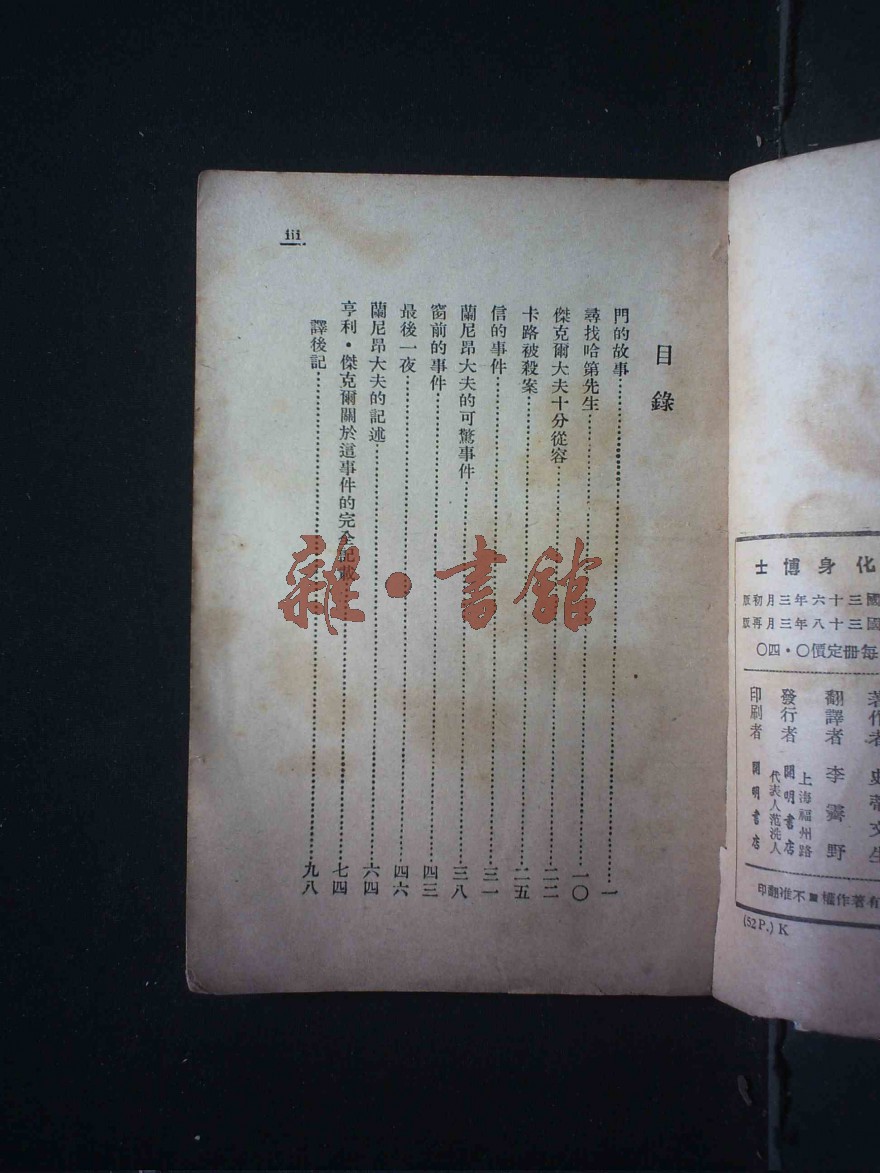 化身博士
國三十六年三月初版
國三十八年三月再版
每冊定價〇·四〇
著作者 史蒂文生
翻譯者 李霽野
上海福州路
發行者 開明書店
代表人范洗人
印刷者 開明書店
有著作權■不准翻印
(52P.) K
目錄
門的故事……一
尋找哈第先生……一〇
傑克爾大夫十分從容……二二
卡路被殺案……二五
信的事件……三一
蘭尼昂大夫的可驚事件……三八
窗前的事件……四三
最後一夜……四六
蘭尼昂大夫的記述……六四
亨利·傑克爾關於這事件的完全記載……七四
譯後記……九八
iii
雜·書館